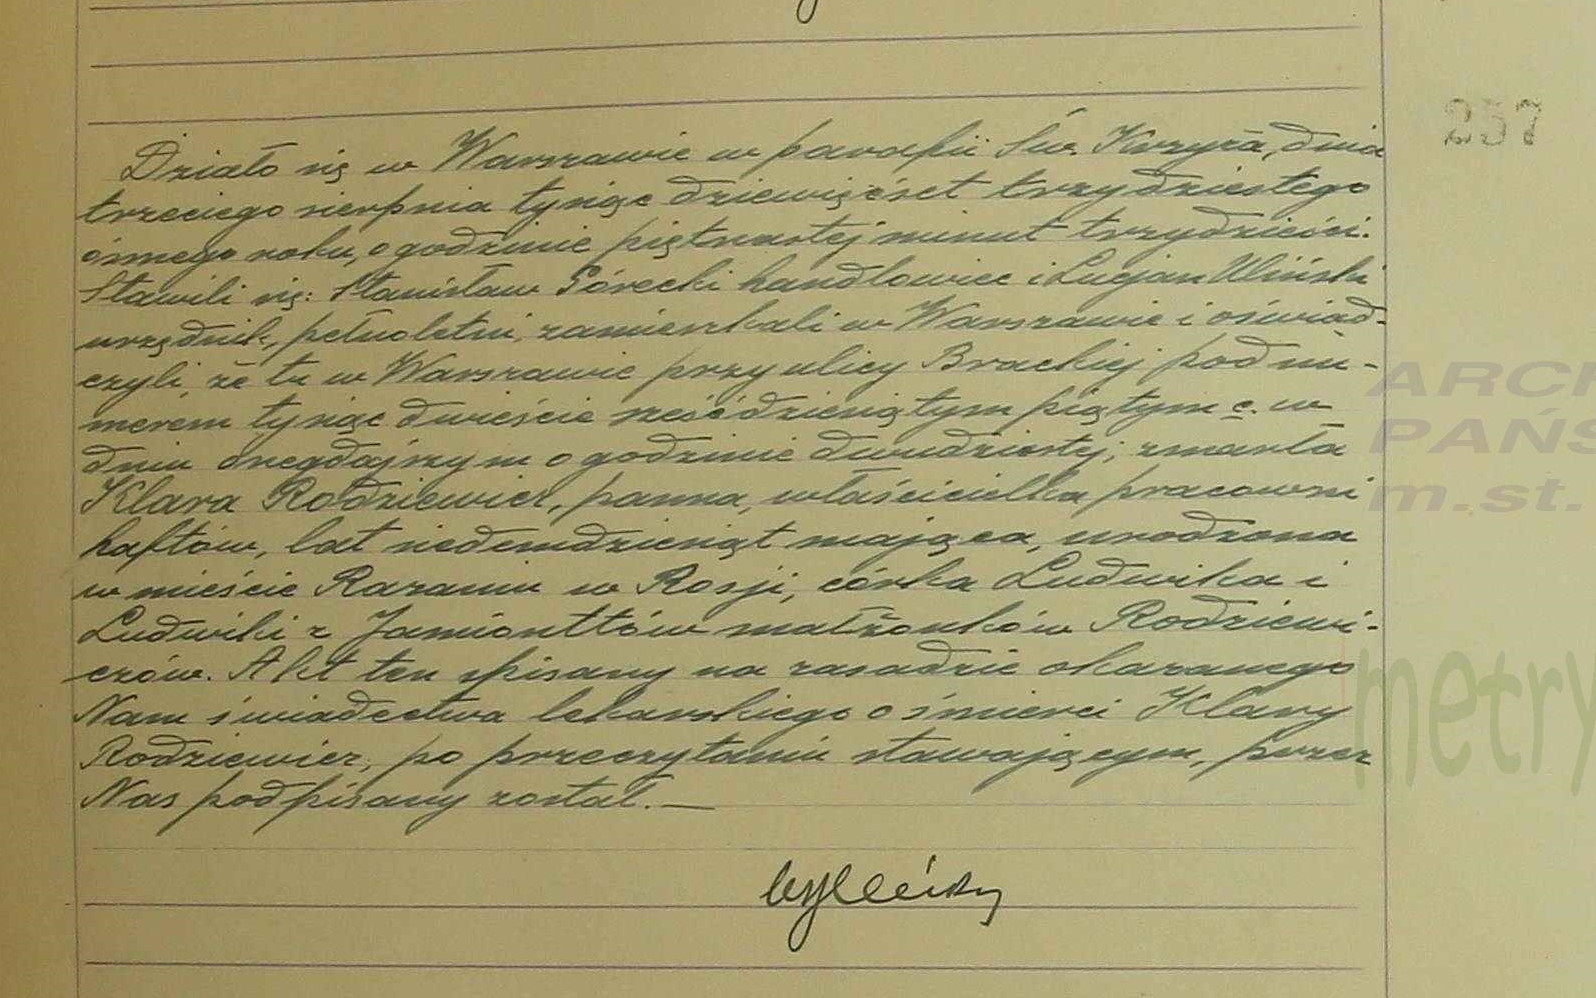 257
Działo się w Warszawie w parafii Św. Krzyża, dnia
trzeciego sierpnia tysiąc dziewięćset trzydziestego
ósmego roku, o godzinie piętnastej minut trzydzieści.
Stawili się: Stanisław Górecki handlowiec i Lucjan Uliński
urzędnik, pełnoletni, zamieszkali w Warszawie i oświad-
czyli, że tu w Warszawie przy ulicy Brackiej pod nu-
merem tysiąc dwieście sześćdziesiątym piątym c. w
dniu onegdajszym o godzinie dwudziestej, zmarła
Klara Rodziewicz, panna, właścicielka pracowni
haftów, lat siedemdziesiąt mająca, urodzona
w mieście Kazaniu w Rosji, córka Ludwika i
Ludwiki z Jamionttów małżonków Rodziewi-
czów. Akt ten spisany na zasadzie okazanego
Nam świadectwa lekarskiego o śmierci Klary
Rodziewicz, po przeczytaniu stawającym, przez
Nas podpisany został. —
ARCH
PAŃS
m.st.
metry